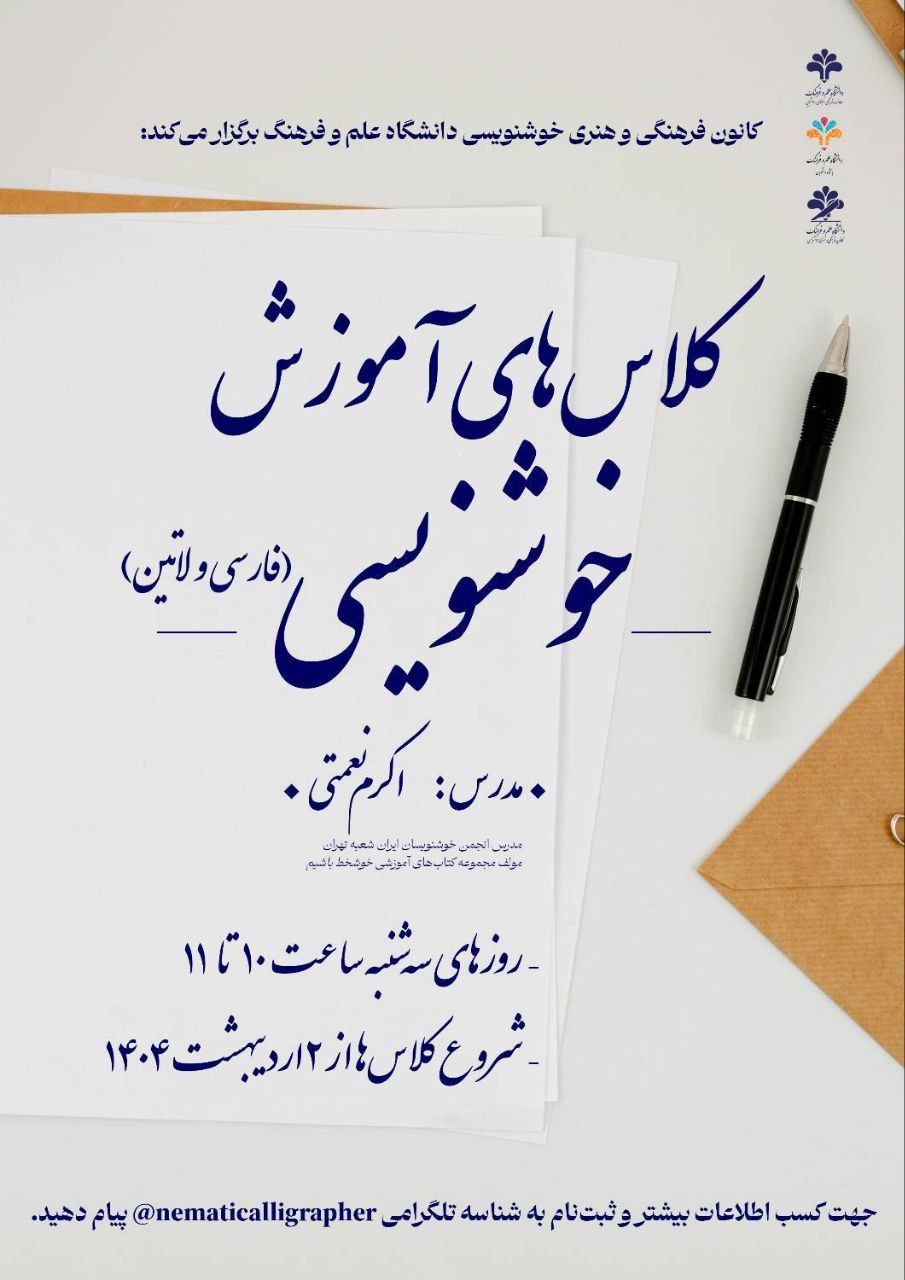 دانشگاه علم و فرهنگ
دانشگاه علم و فرهنگ
دانشگاه علم و فرهنگ
کانون فرهنگی و هنری خوشنویسی دانشگاه علم و فرهنگ برگزار می‌کند:
کلاس‌های آموزش
خوشنویسی (فارسی و لاتین)
• مدرس: اکرم نعمتی •
مدرس انجمن خوشنویسان ایران شعبه تهران
مولف مجموعه کتاب‌های آموزشی خوشخط باشیم
- روزهای سه‌شنبه ساعت ۱۰ تا ۱۱
- شروع کلاس‌ها از ۲ اردیبهشت ۱۴۰۴
جهت کسب اطلاعات بیشتر و ثبت‌نام به شناسه تلگرامی @nematicalligrapher پیام دهید.